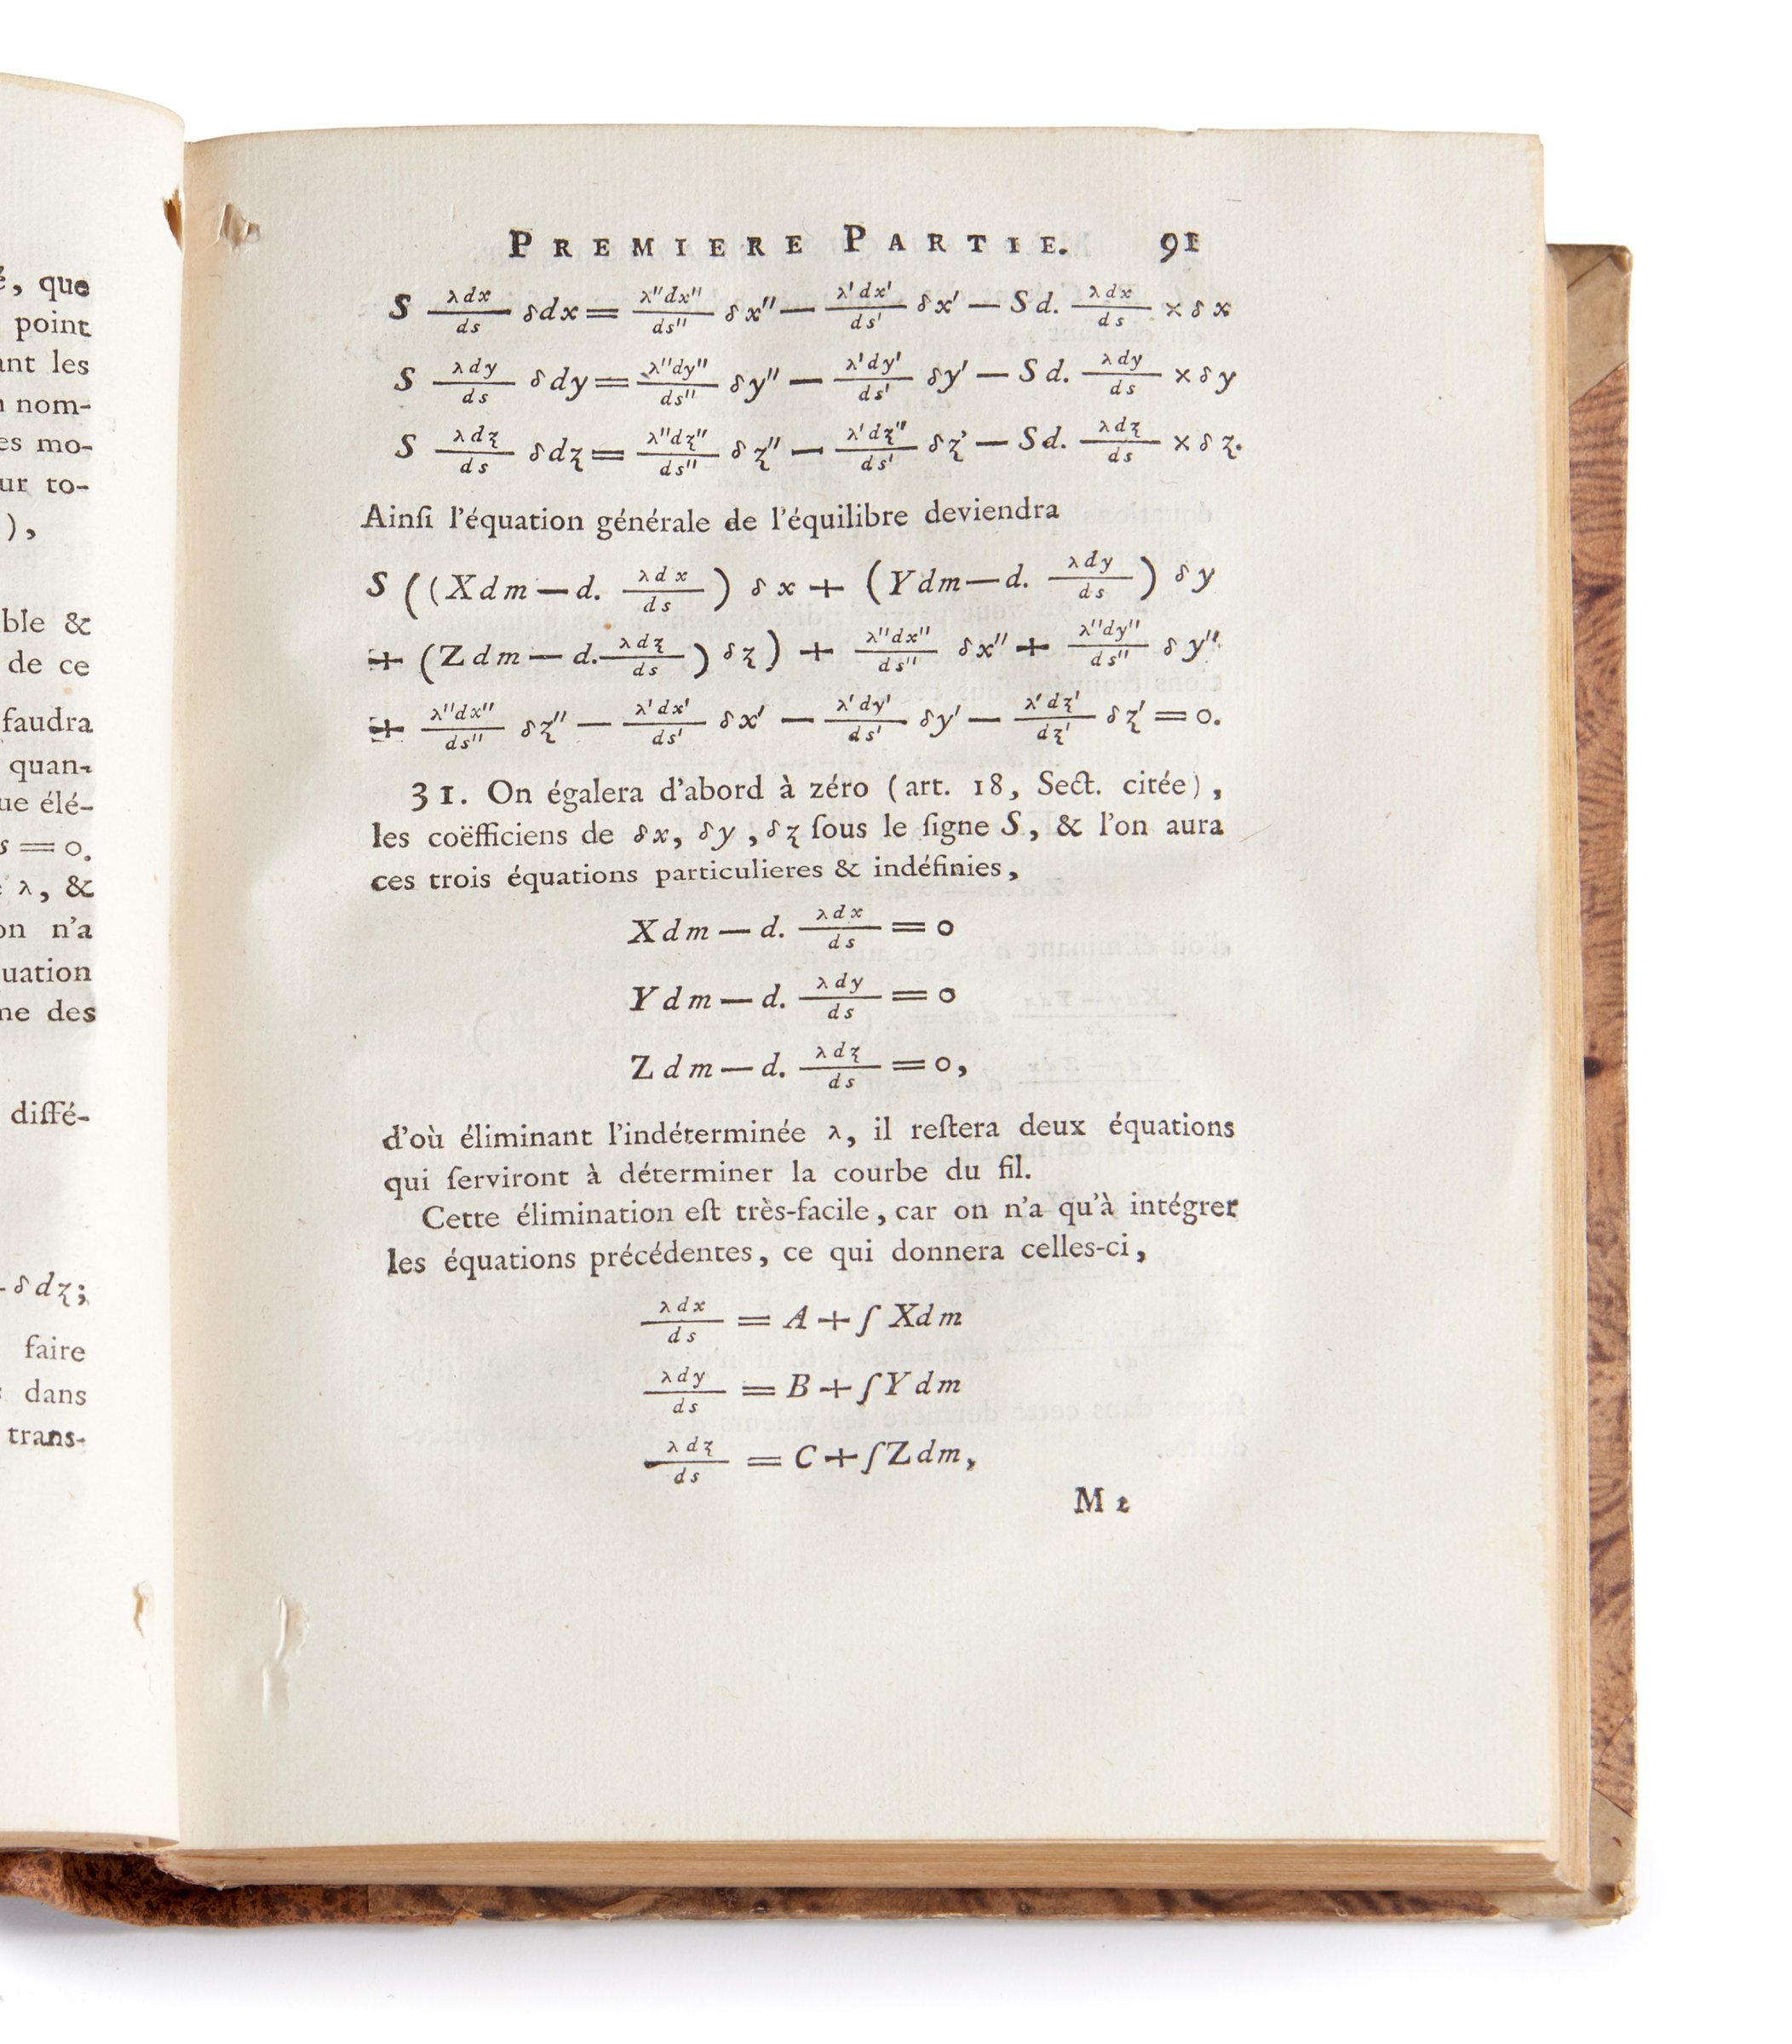 é, que
point
ant les
nom-
es mo-
ur to-
),
ble &
de ce
faudra
quan-
ue élé-
s = 0.
λ, &
on n'a
uation
ne des
diffé-
- δdz;
faire
dans
trans-
PREMIERE PARTIE. 91
S λdx/ds δdx = λ''dx''/ds'' δx'' — λ'dx'/ds' δx' — Sd. λdx/ds × δx
S λdy/ds δdy = λ''dy''/ds'' δy'' — λ'dy'/ds' δy' — Sd. λdy/ds × δy
S λdz/ds δdz = λ''dz''/ds'' δz'' — λ'dz''/ds' δz' — Sd. λdz/ds × δz.
Ainſi l'équation générale de l'équilibre deviendra
S ((Xdm — d. λdx/ds) δx + (Ydm — d. λdy/ds) δy
+ (Zdm — d. λdz/ds) δz) + λ''dx''/ds'' δx'' + λ''dy''/ds'' δy''
+ λ''dx''/ds'' δz'' — λ'dx'/ds' δx' — λ'dy'/ds' δy' — λ'dz'/dz' δz' = 0.
31. On égalera d'abord à zéro (art. 18, Sect. citée),
les coëfficiens de δx, δy, δz ſous le ſigne S, & l'on aura
ces trois équations particulieres & indéfinies,
Xdm — d. λdx/ds = 0
Ydm — d. λdy/ds = 0
Zdm — d. λdz/ds = 0,
d'où éliminant l'indéterminée λ, il reſtera deux équations
qui ſerviront à déterminer la courbe du fil.
Cette élimination eſt très-facile, car on n'a qu'à intégrer
les équations précédentes, ce qui donnera celles-ci,
λdx/ds = A + ∫ Xdm
λdy/ds = B + ∫ Ydm
λdz/ds = C + ∫ Zdm,
M 2